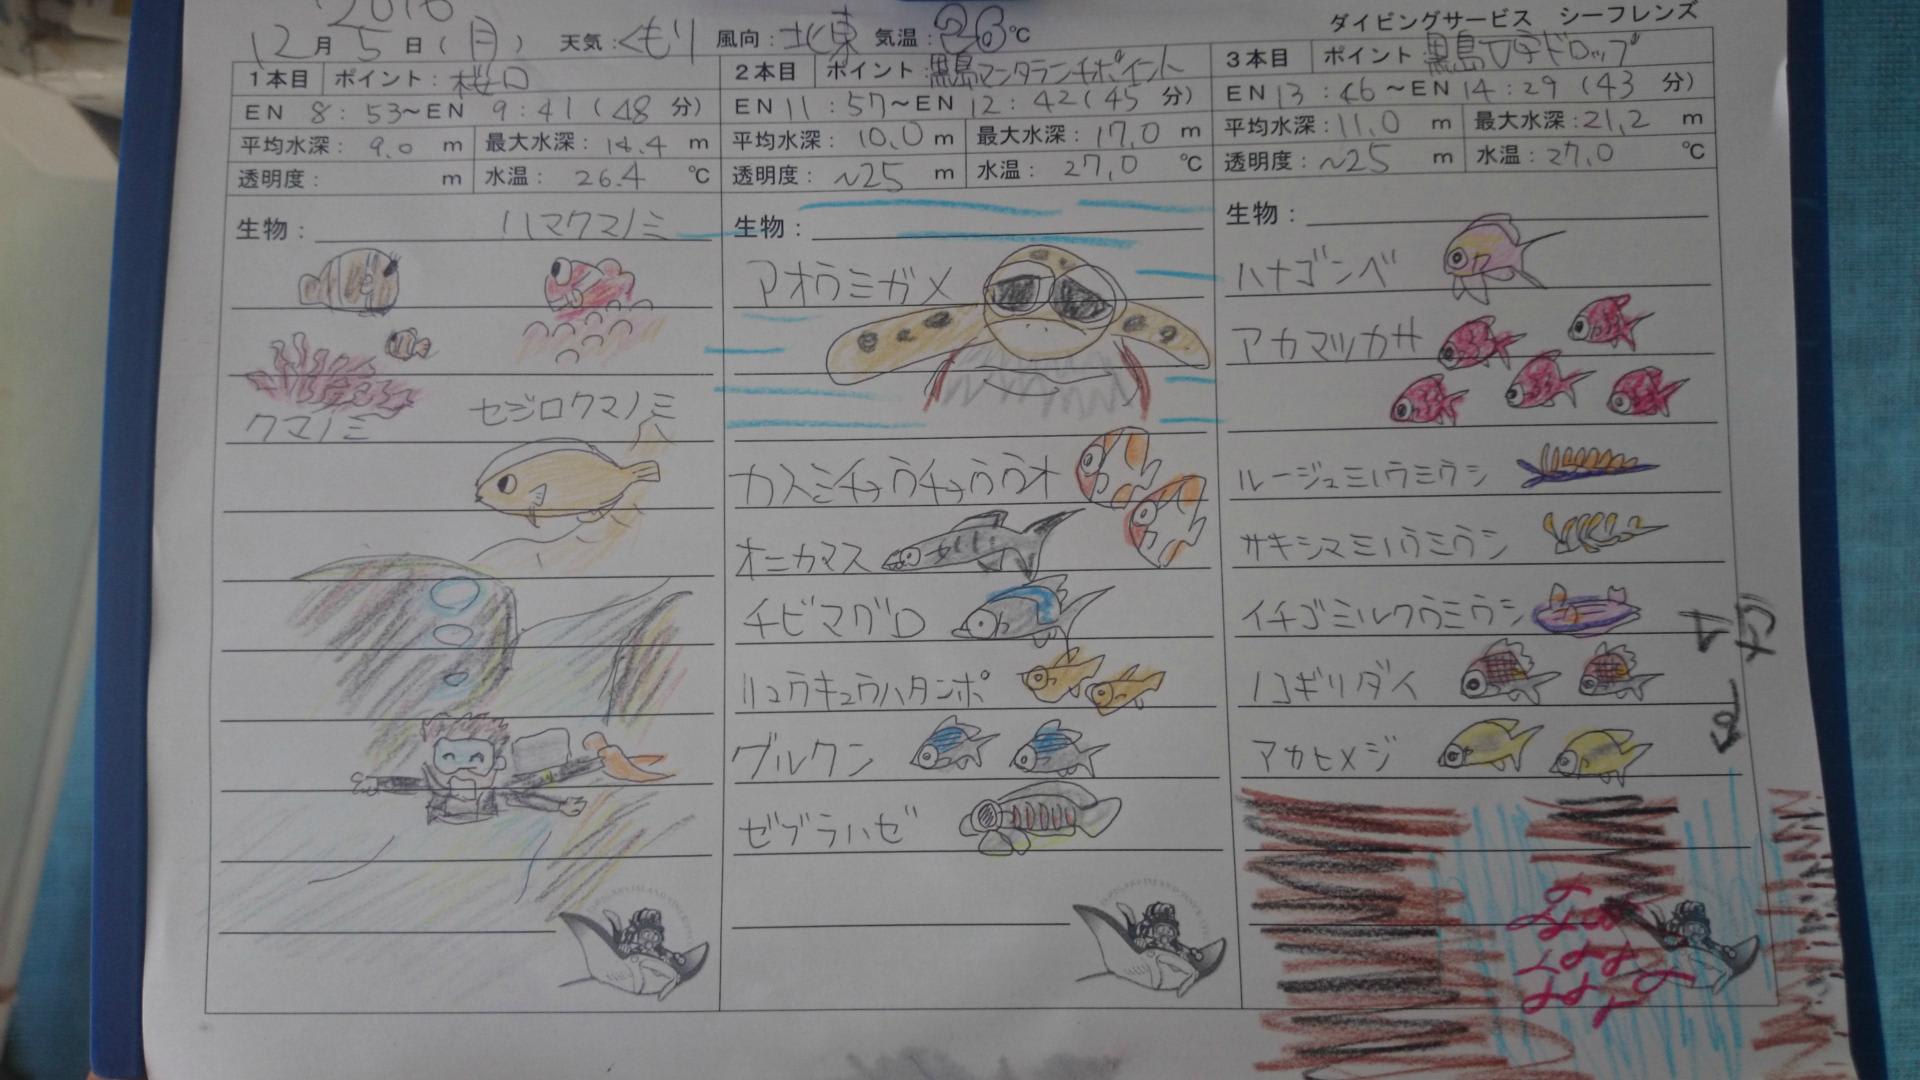 2016
ダイビングサービス シーフレンズ
12月 5日(月) 天気:くもり 風向:北東 気温:26℃
1本目 ポイント:桜口
EN 8:53～EN 9:41(48分)
平均水深:9.0 m 最大水深:14.4 m
透明度: m 水温:26.4 ℃
生物:
ハマクマノミ
クマノミ
セジロクマノミ
2本目 ポイント:黒島マンタランチポイント
EN 11:57～EN 12:42(45分)
平均水深:10.0 m 最大水深:17.0 m
透明度:~25 m 水温:27.0 ℃
生物:
アオウミガメ
カスミチョウチョウウオ
オニカマス
チビマグロ
リュウキュウハタンポ
グルクン
ゼブラハゼ
3本目 ポイント:黒島V字ドロップ
EN 13:46～EN 14:29(43分)
平均水深:11.0 m 最大水深:21.2 m
透明度:~25 m 水温:27.0 ℃
生物:
ハナゴンベ
アカマツカサ
ルージュミノウミウシ
サキシマミノウミウシ
イチゴミルクウミウシ
ノコギリダイ
アカヒメジ